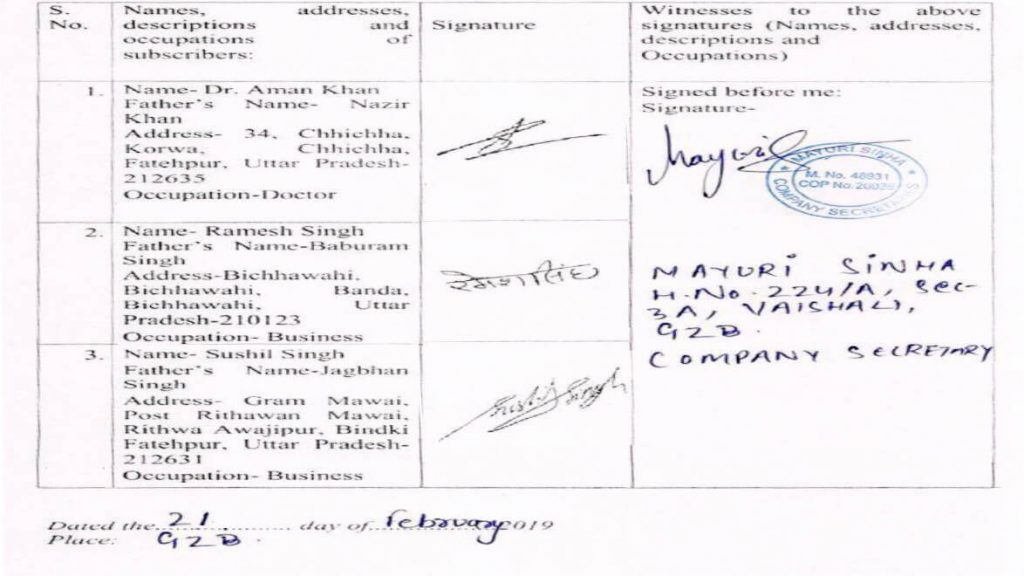 S. No.
Names, addresses, descriptions and occupations of subscribers:
Signature
Witnesses to the above signatures (Names, addresses, descriptions and Occupations)
1.
Name- Dr. Aman Khan
Father's Name- Nazir
Khan
Address- 34, Chhichha,
Korwa, Chhichha,
Fatehpur, Uttar Pradesh-
212635
Occupation-Doctor
Signed before me:
Signature-
Mayuri
MAYURI SINHA
M. No. 48931
COP No.
COMPANY SECRETARY
2.
Name- Ramesh Singh
Father's Name-Baburam
Singh
Address-Bichhawahi,
Bichhawahi, Banda,
Bichhawahi, Uttar
Pradesh-210123
Occupation- Business
रमेश सिंह
MAYURI SINHA
H.No. 224/A, Sec-
3A, VAISHALI,
GZB.
COMPANY SECRETARY
3.
Name- Sushil Singh
Father's Name-Jagbhan
Singh
Address- Gram Mawai,
Post Rithawan Mawai,
Rithwa Awajipur, Bindki
Fatehpur, Uttar Pradesh-
212631
Occupation- Business
Sushil Singh
Dated the 21 day of February 2019
Place: GZB.